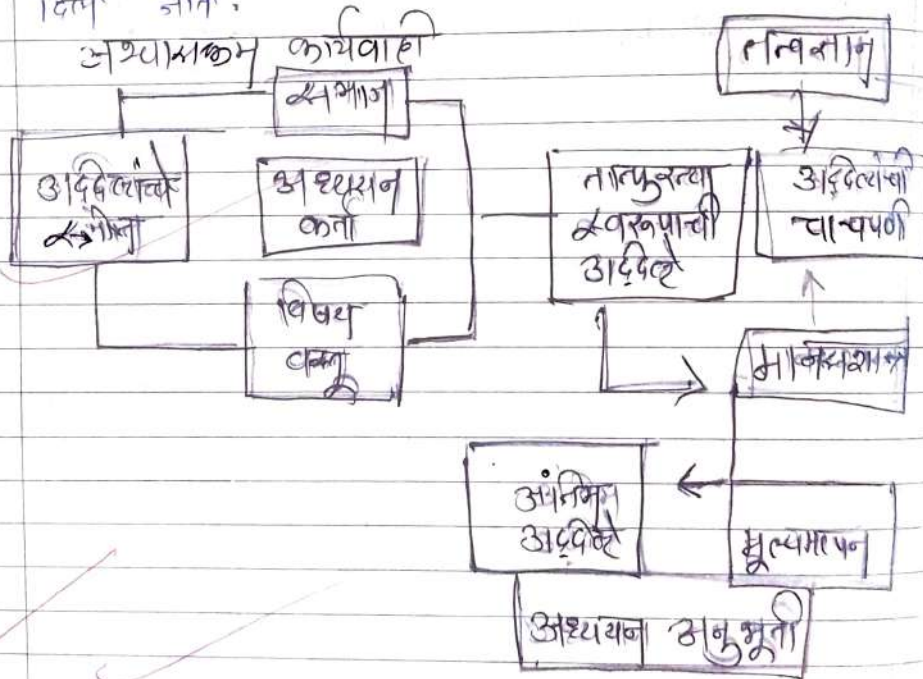 दिले जाते.
अभ्यासक्रम कार्यवाही
समाज
तत्वज्ञान
उद्दिष्टांचे
स्त्रोत
अध्ययन
कर्ता
विषय
वस्तू
तात्पुरत्या
स्वरूपाची
उद्दिष्टे
उद्दिष्टांची
चाचपणी
मानसशास्त्र
अंतिम
उद्दिष्टे
मूल्यमापन
अध्ययन अनुभूती